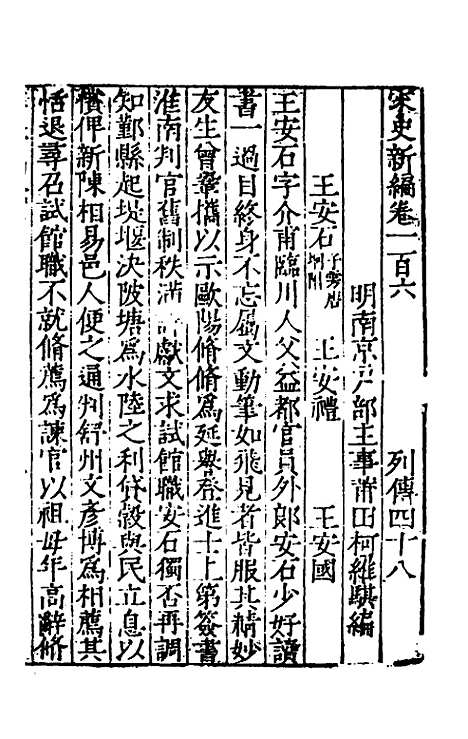 宋史新編卷一百六　列傳四十八
明南京戶部主事莆田柯維騏編
王安石子雱　王安禮　王安國
王安石字介甫臨川人父益都官員外郎安石少好讀
書一過目終身不忘屬文動筆如飛見者皆服其精妙
友生曾鞏攜以示歐陽脩脩爲延譽登進士上第簽書
淮南判官舊制秩滿許獻文求試館職安石獨否再調
知鄞縣起堤堰決陂塘爲水陸之利貸穀與民立息以
償俾新陳相易邑人便之通判舒州文彥博爲相薦其
恬退尋召試館職不就脩薦爲諫官以祖母年高辭脩